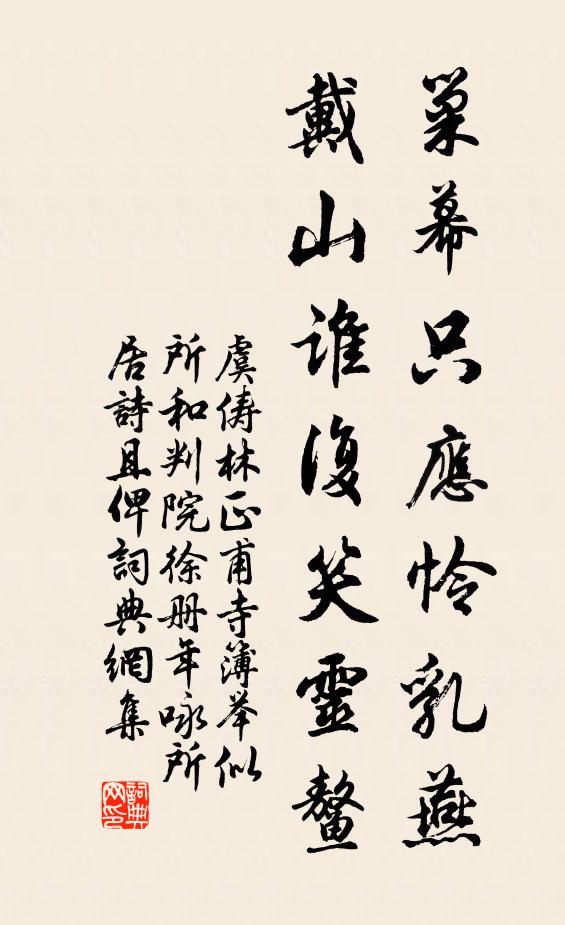 巢幕只應怜乳燕
戴山誰復笑靈鰲
虞俦林正甫寺簿举似
所和判院徐册年咏所
居詩且俾詞典網集
詞典网印